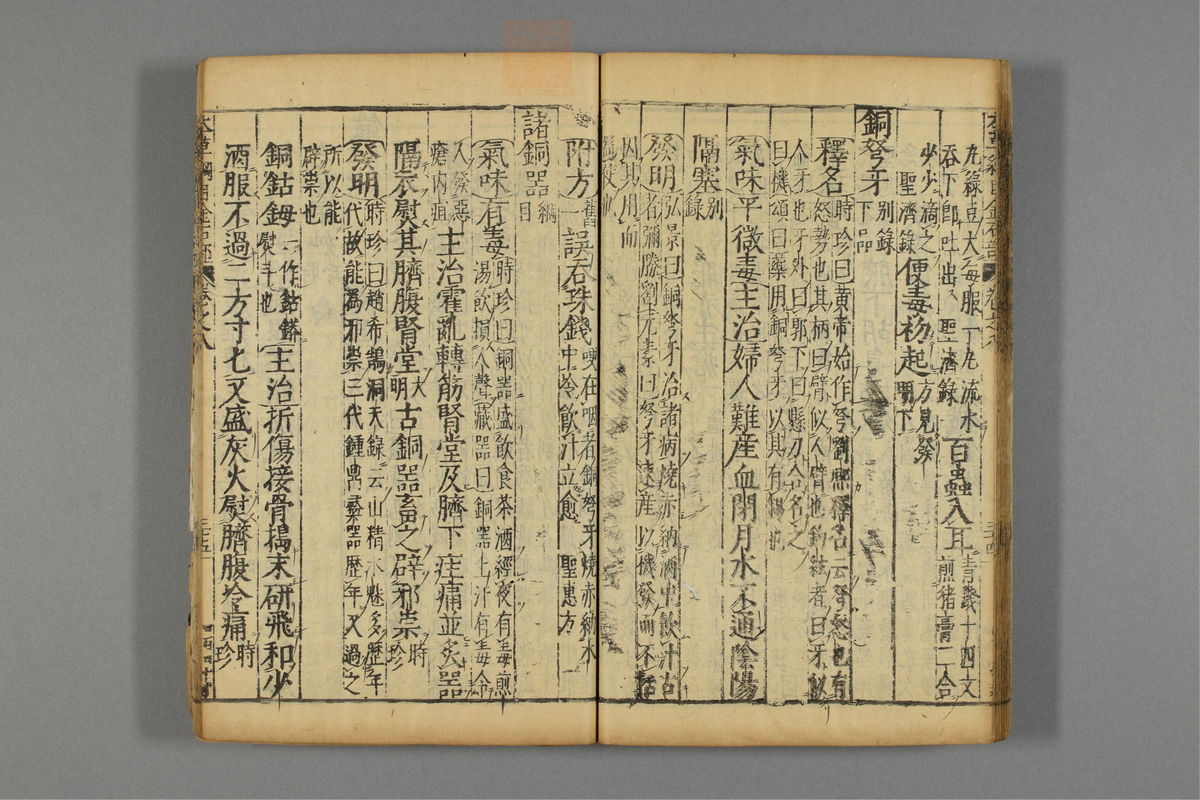 丸綠豆大每服一丸流水
吞下卽吐出 聖濟錄 百蟲入耳 青錢十四文
煎猪膏二合
少少滴之
聖濟錄 便毒初起 方見發
明下
銅弩牙 別錄
下品
釋名 時珍曰黃帝始作弩劉熙釋名云弩怒也有
怒勢也其柄曰臂似人臂也鉤絃者曰牙似
人牙也牙外曰郭下曰懸刀合名之
曰機頌曰藥用銅弩牙以其有錫也
氣味平微毒主治婦人難産血閉月水不通陰陽
隔塞 別
錄
發明 弘景曰銅弩牙治諸病燒赤納酒中飲汁古
者彌勝劉完素曰弩牙速産以機發而不括
因其用而
附方 舊
一 誤吞珠錢 哽在咽者銅弩牙燒赤納水
中冷飲汁立愈 聖惠方
諸銅器 綱
目
氣味有毒 時珍曰銅器盛飲食茶酒經夜有毒煎
湯飲損人聲藏器曰銅器上汗有毒令
人發惡
瘡內疽 主治霍亂轉筋腎堂及臍下疰痛並炙器
隔衣熨其臍腹腎堂 大
明 古銅器畜之辟邪祟 時
珍
發明 時珍曰趙希鵠洞天錄云山精水魅多歷年
代故能爲邪祟三代鍾鼎彝器歷年又過之
所以能
辟祟也
銅鈷鉧 一作鈷䥈
熨斗也 主治折傷接骨擣末研飛和少
酒服不過二方寸匕又盛灰火熨臍腹冷痛 時
珍